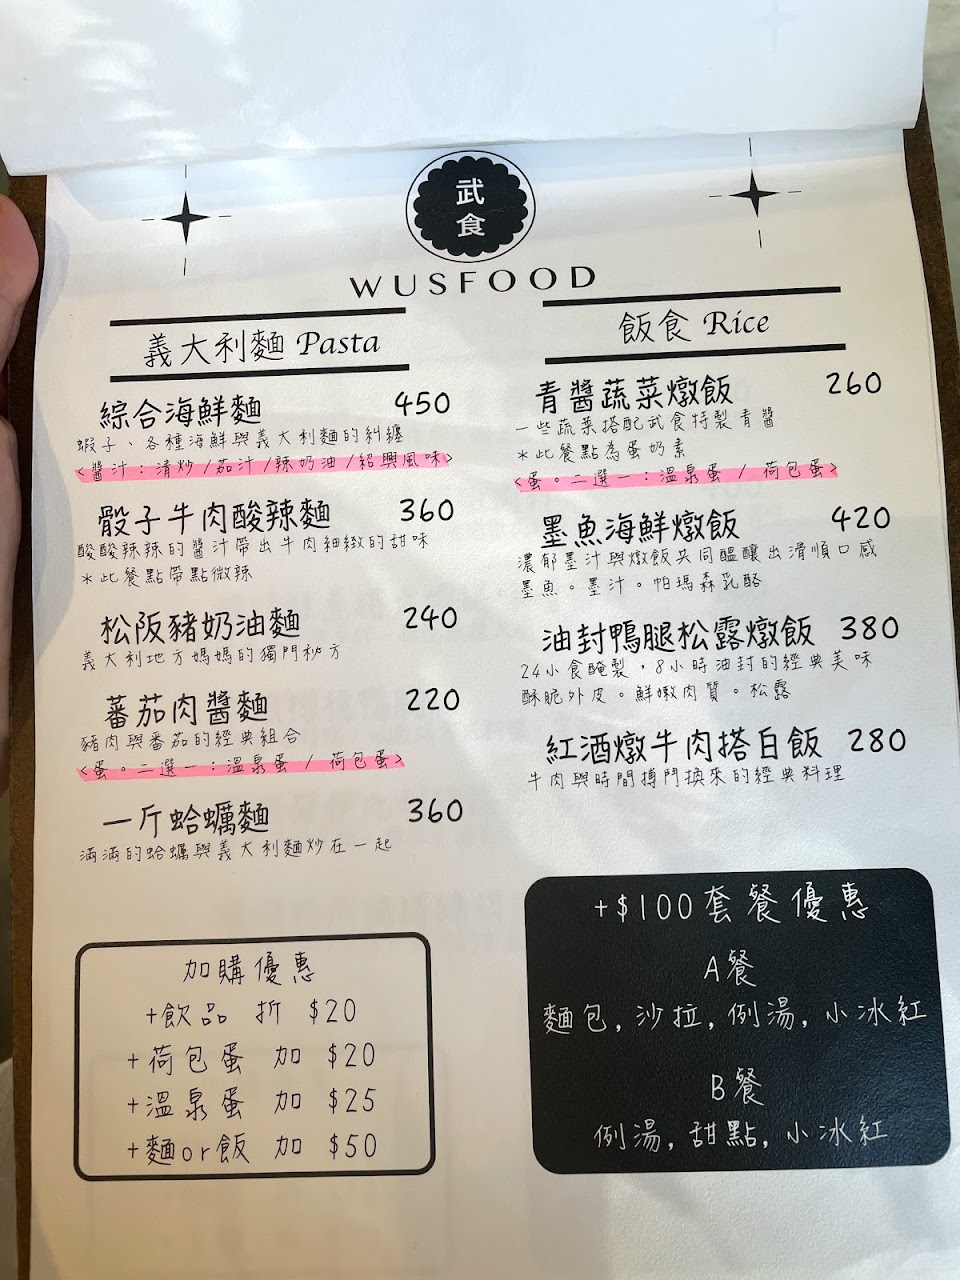 武食
WUSFOOD
義大利麵 Pasta
綜合海鮮麵 450
蝦子、各種海鮮與義大利麵的糾纏
<醬汁：清炒/茄汁/辣奶油/紹興風味>
骰子牛肉酸辣麵 360
酸酸辣辣的醬汁帶出牛肉細緻的甜味
*此餐點帶點微辣
松阪豬奶油麵 240
義大利地方媽媽的獨門秘方
蕃茄肉醬麵 220
豬肉與番茄的經典組合
<蛋。二選一：溫泉蛋 / 荷包蛋>
一斤蛤蠣麵 360
滿滿的蛤蠣與義大利麵炒在一起
飯食 Rice
青醬蔬菜燉飯 260
一些蔬菜搭配武食特製青醬
*此餐點為蛋奶素
<蛋。二選一：溫泉蛋 / 荷包蛋>
墨魚海鮮燉飯 420
濃郁墨汁與燉飯共同醞釀出滑順口感
墨魚。墨汁。帕瑪森乳酪
油封鴨腿松露燉飯 380
24小食醃製，8小時油封的經典美味
酥脆外皮。鮮嫩肉質。松露
紅酒燉牛肉搭白飯 280
牛肉與時間搏鬥換來的經典料理
加購優惠
+飲品 折 $20
+荷包蛋 加 $20
+溫泉蛋 加 $25
+麵or飯 加 $50
+$100套餐優惠
A餐
麵包,沙拉,例湯,小冰紅
B餐
例湯,甜點,小冰紅